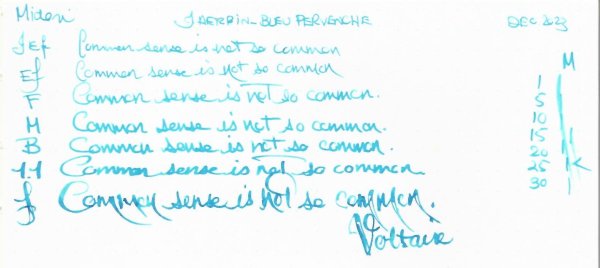 Midori J HERBIN - BLEU PERVENCHE DEC 2023
JEf Common sense is not so common
Ef Common sense is not so common
F Common sense is not so common.
M Common sense is not so common.
B Common sense is not so common.
1.1 Common sense is not so common.
Common sense is not so common.
Voltaire
M
1
5
10
15
20
25
30